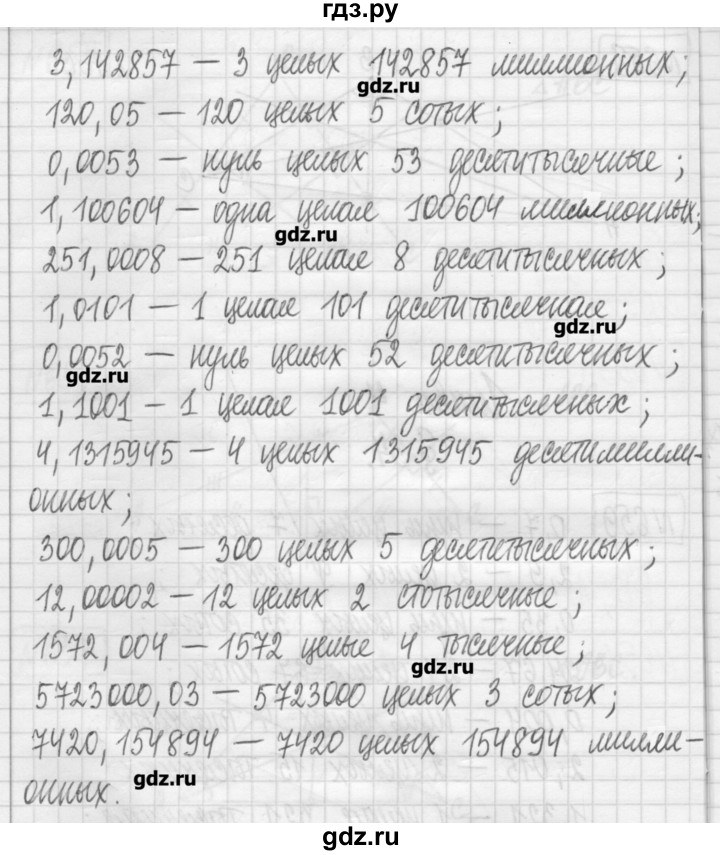 гдз.ру
3,142857 — 3 целых 142857 миллионных;
gdz.ru
120,05 — 120 целых 5 сотых;
0,0053 — нуль целых 53 десятитысячные;
1,100604 — одна целая 100604 миллионных;
gdz.ru
251,0008 — 251 целая 8 десятитысячных;
1,0101 — 1 целая 101 десятитысячная;
gdz.ru
0,0052 — нуль целых 52 десятитысячных;
gdz.ru
1,1001 — 1 целая 1001 десятитысячных;
4,1315945 — 4 целых 1315945 десятимилли-
онных;
300,0005 — 300 целых 5 десятитысячных;
12,00002 — 12 целых 2 стотысячные;
1572,004 — 1572 целые 4 тысячные;
gdz.ru
5723000,03 — 5723000 целых 3 сотых;
7420,154894 — 7420 целых 154894 милли-
gdz.ru
онных.
gdz.ru